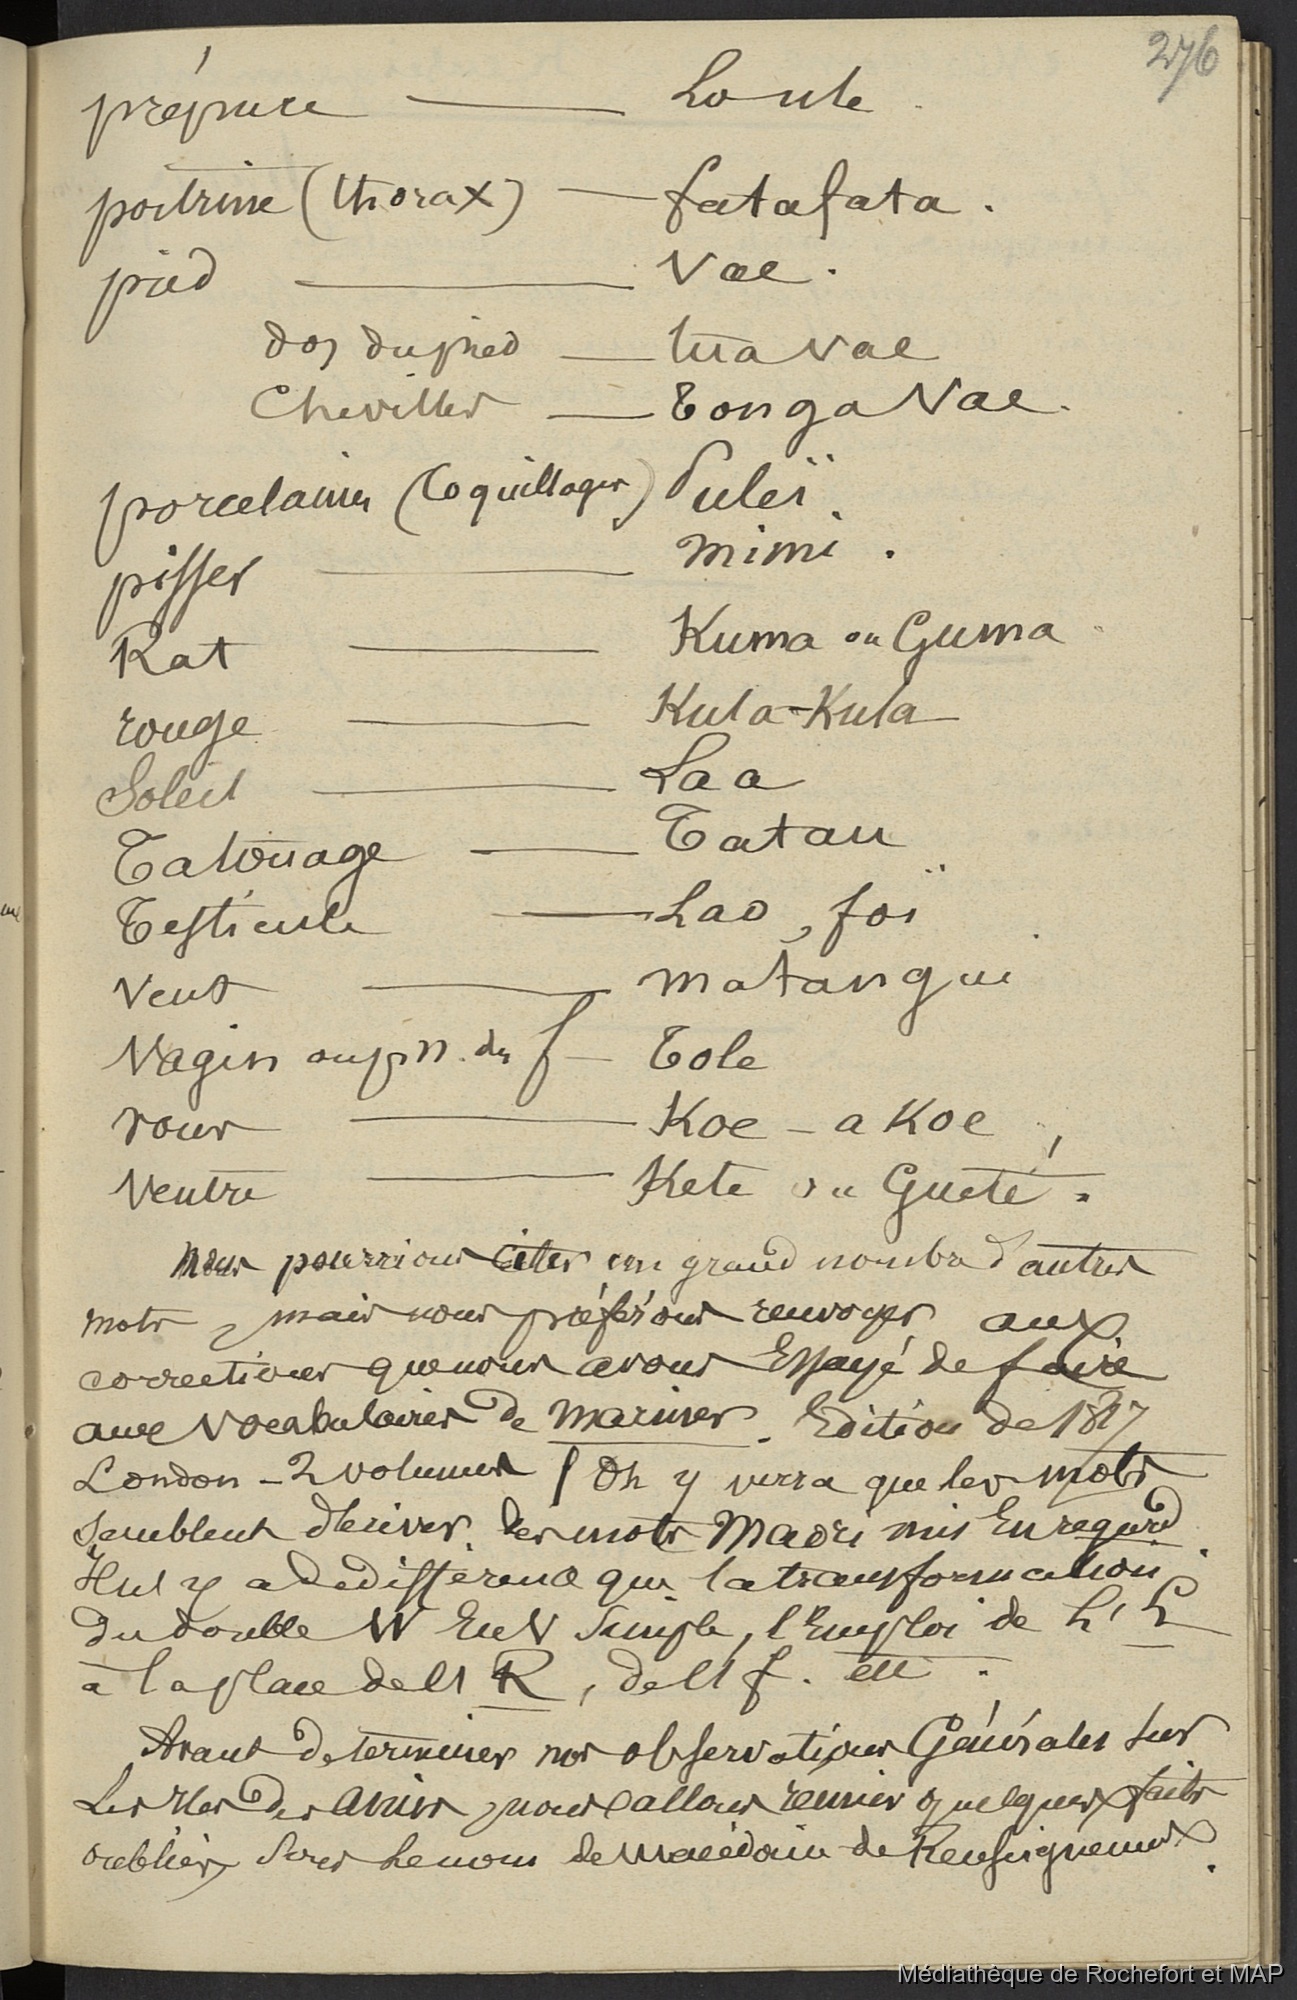 276
prépuce — Loule.
poitrine (thorax) — fatafata.
pied — Vae.
dos du pied — tua vae
Chevilles — Tonga Vae.
porcelaines (Coquillages) Puleï.
pisser — mimi.
Rat — Kuma ou Guma
rouge — Kula-Kula
Soleil — Laa
Tatouage — Tatau
Testicule — Lao, foï
Vent — matangui
Vagin ou p. n. des f — Tole
vous — Koe - a Koe,
Ventre — Kete ou Gueté.
Nous pourrions citer un grand nombre d'autres
mots, mais nous préférons renvoyer aux
corrections que nous avons Essayé de faire
aux Vocabulaires de Mariner. Edition de 1817
London - 2 volumes / On y verra que les mots
semblent dériver des mots Maori mis En regard.
Il n'y a de différence que la transformation
du double W En V Simple, l'Emploi de L'L
à la place de l'R, de l'f. etc.
Avant de terminer nos observations Générales sur
Les Iles des Amis, nous allons réunir quelques faits
oubliés, Sous le nom de Macédoine de Renseignemens.
Médiathèque de Rochefort et MAP